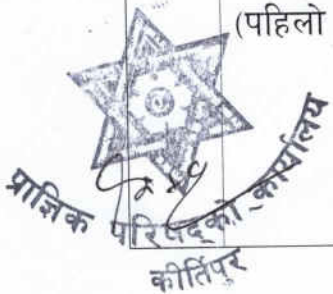 (पहिलो
प्राज्ञिक परिषद्को कार्यालय
कीर्तिपुर